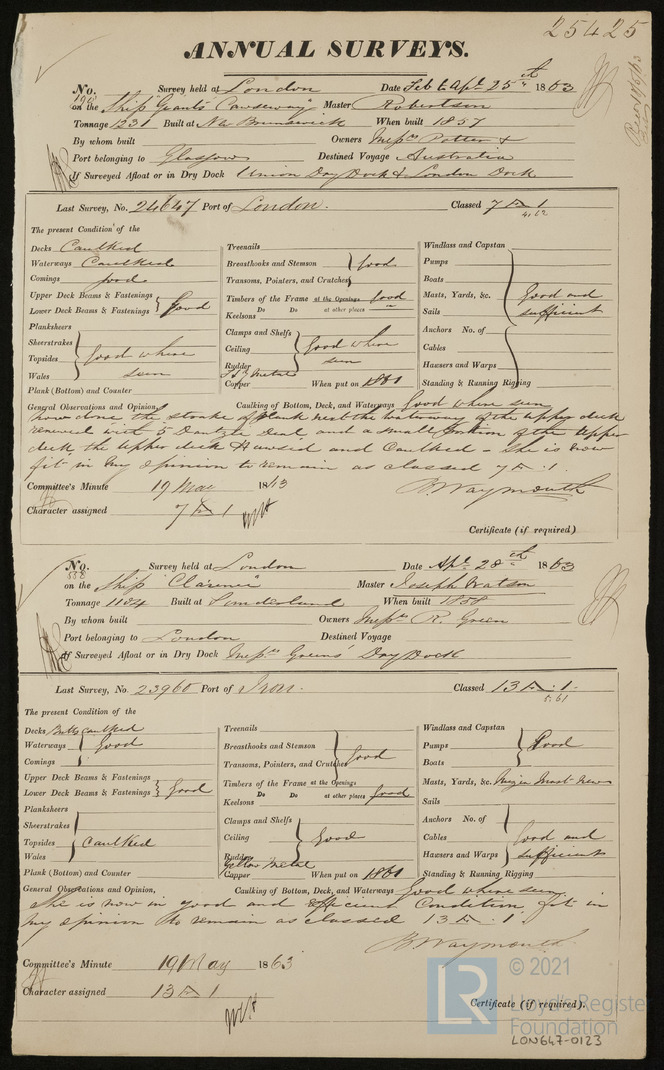 25425
ANNUAL SURVEYS.
No. Survey held at London Date Feb & Apl 25th 1863
on the Ship "Giants Causeway" Master Robertson
Tonnage 1231 Built at Nw Brunswick When built 1857
By whom built Owners Messrs Potter &
Port belonging to Glasgow Destined Voyage Australia
If Surveyed Afloat or in Dry Dock Union Dry Dock & London Dock
Last Survey, No. 24647 Port of London. Classed 7 A 1
4.62
The present Condition of the
Decks Caulked
Waterways Caulked
Comings good
Upper Deck Beams & Fastenings
Lower Deck Beams & Fastenings Good
Planksheers
Sheerstrakes
Topsides Good where
Wales seen
Plank (Bottom) and Counter
Treenails
Breasthooks and Stemson Good
Transoms, Pointers, and Crutches
Timbers of the Frame at the Openings Good
Keelsons Do Do at other places "
Clamps and Shelfs
Ceiling Good where
Rudder seen
Y Metal
Copper When put on 1861
Windlass and Capstan
Pumps
Boats
Masts, Yards, &c. Good and
Sails sufficient
Anchors No. of
Cables
Hawsers and Warps
Standing & Running Rigging
General Observations and Opinion, Caulking of Bottom, Deck, and Waterways Good where seen
now done the strake of plank next the waterway of the upper deck
renewed with 5 Dantzic Deal and a small portion of the upper
deck, the upper deck Hawsed and Caulked - She is now
fit in my opinion to remain as classed 7 A .1.
Committee's Minute 19 May 1863
B Waymouth
Character assigned 7 A 1
Certificate (if required)
No. Survey held at London Date Apl 28th 1863
558
on the Ship "Clarence" Master Joseph Watson
Tonnage 1104 Built at Sunderland When built 1858
By whom built Owners Messrs R. Green
Port belonging to London Destined Voyage
If Surveyed Afloat or in Dry Dock Messrs Greens' Dry Dock
Last Survey, No. 23960 Port of Lon. Classed 13 A .1.
5.61
The present Condition of the
Decks Butts caulked
Waterways Good
Comings
Upper Deck Beams & Fastenings
Lower Deck Beams & Fastenings Good
Planksheers
Sheerstrakes
Topsides Caulked
Wales
Plank (Bottom) and Counter
Treenails
Breasthooks and Stemson
Transoms, Pointers, and Crutches Good
Timbers of the Frame at the Openings
Keelsons Do Do at other places Good
Clamps and Shelfs
Ceiling Good
Rudder
Yellow Metal
Copper When put on 1861
Windlass and Capstan
Pumps Good
Boats
Masts, Yards, &c. Mizen Mast New
Sails
Anchors No. of
Cables Good and
Hawsers and Warps sufficient
Standing & Running Rigging
General Observations and Opinion, Caulking of Bottom, Deck, and Waterways Good where seen
She is now in good and efficient Condition fit in
my opinion to remain as classed 13 A .1.
B Waymouth
Committee's Minute 19 May 1863
Character assigned 13 A 1
Certificate (if required).
© 2021
LR Lloyd's Register
Foundation
LON647-0123